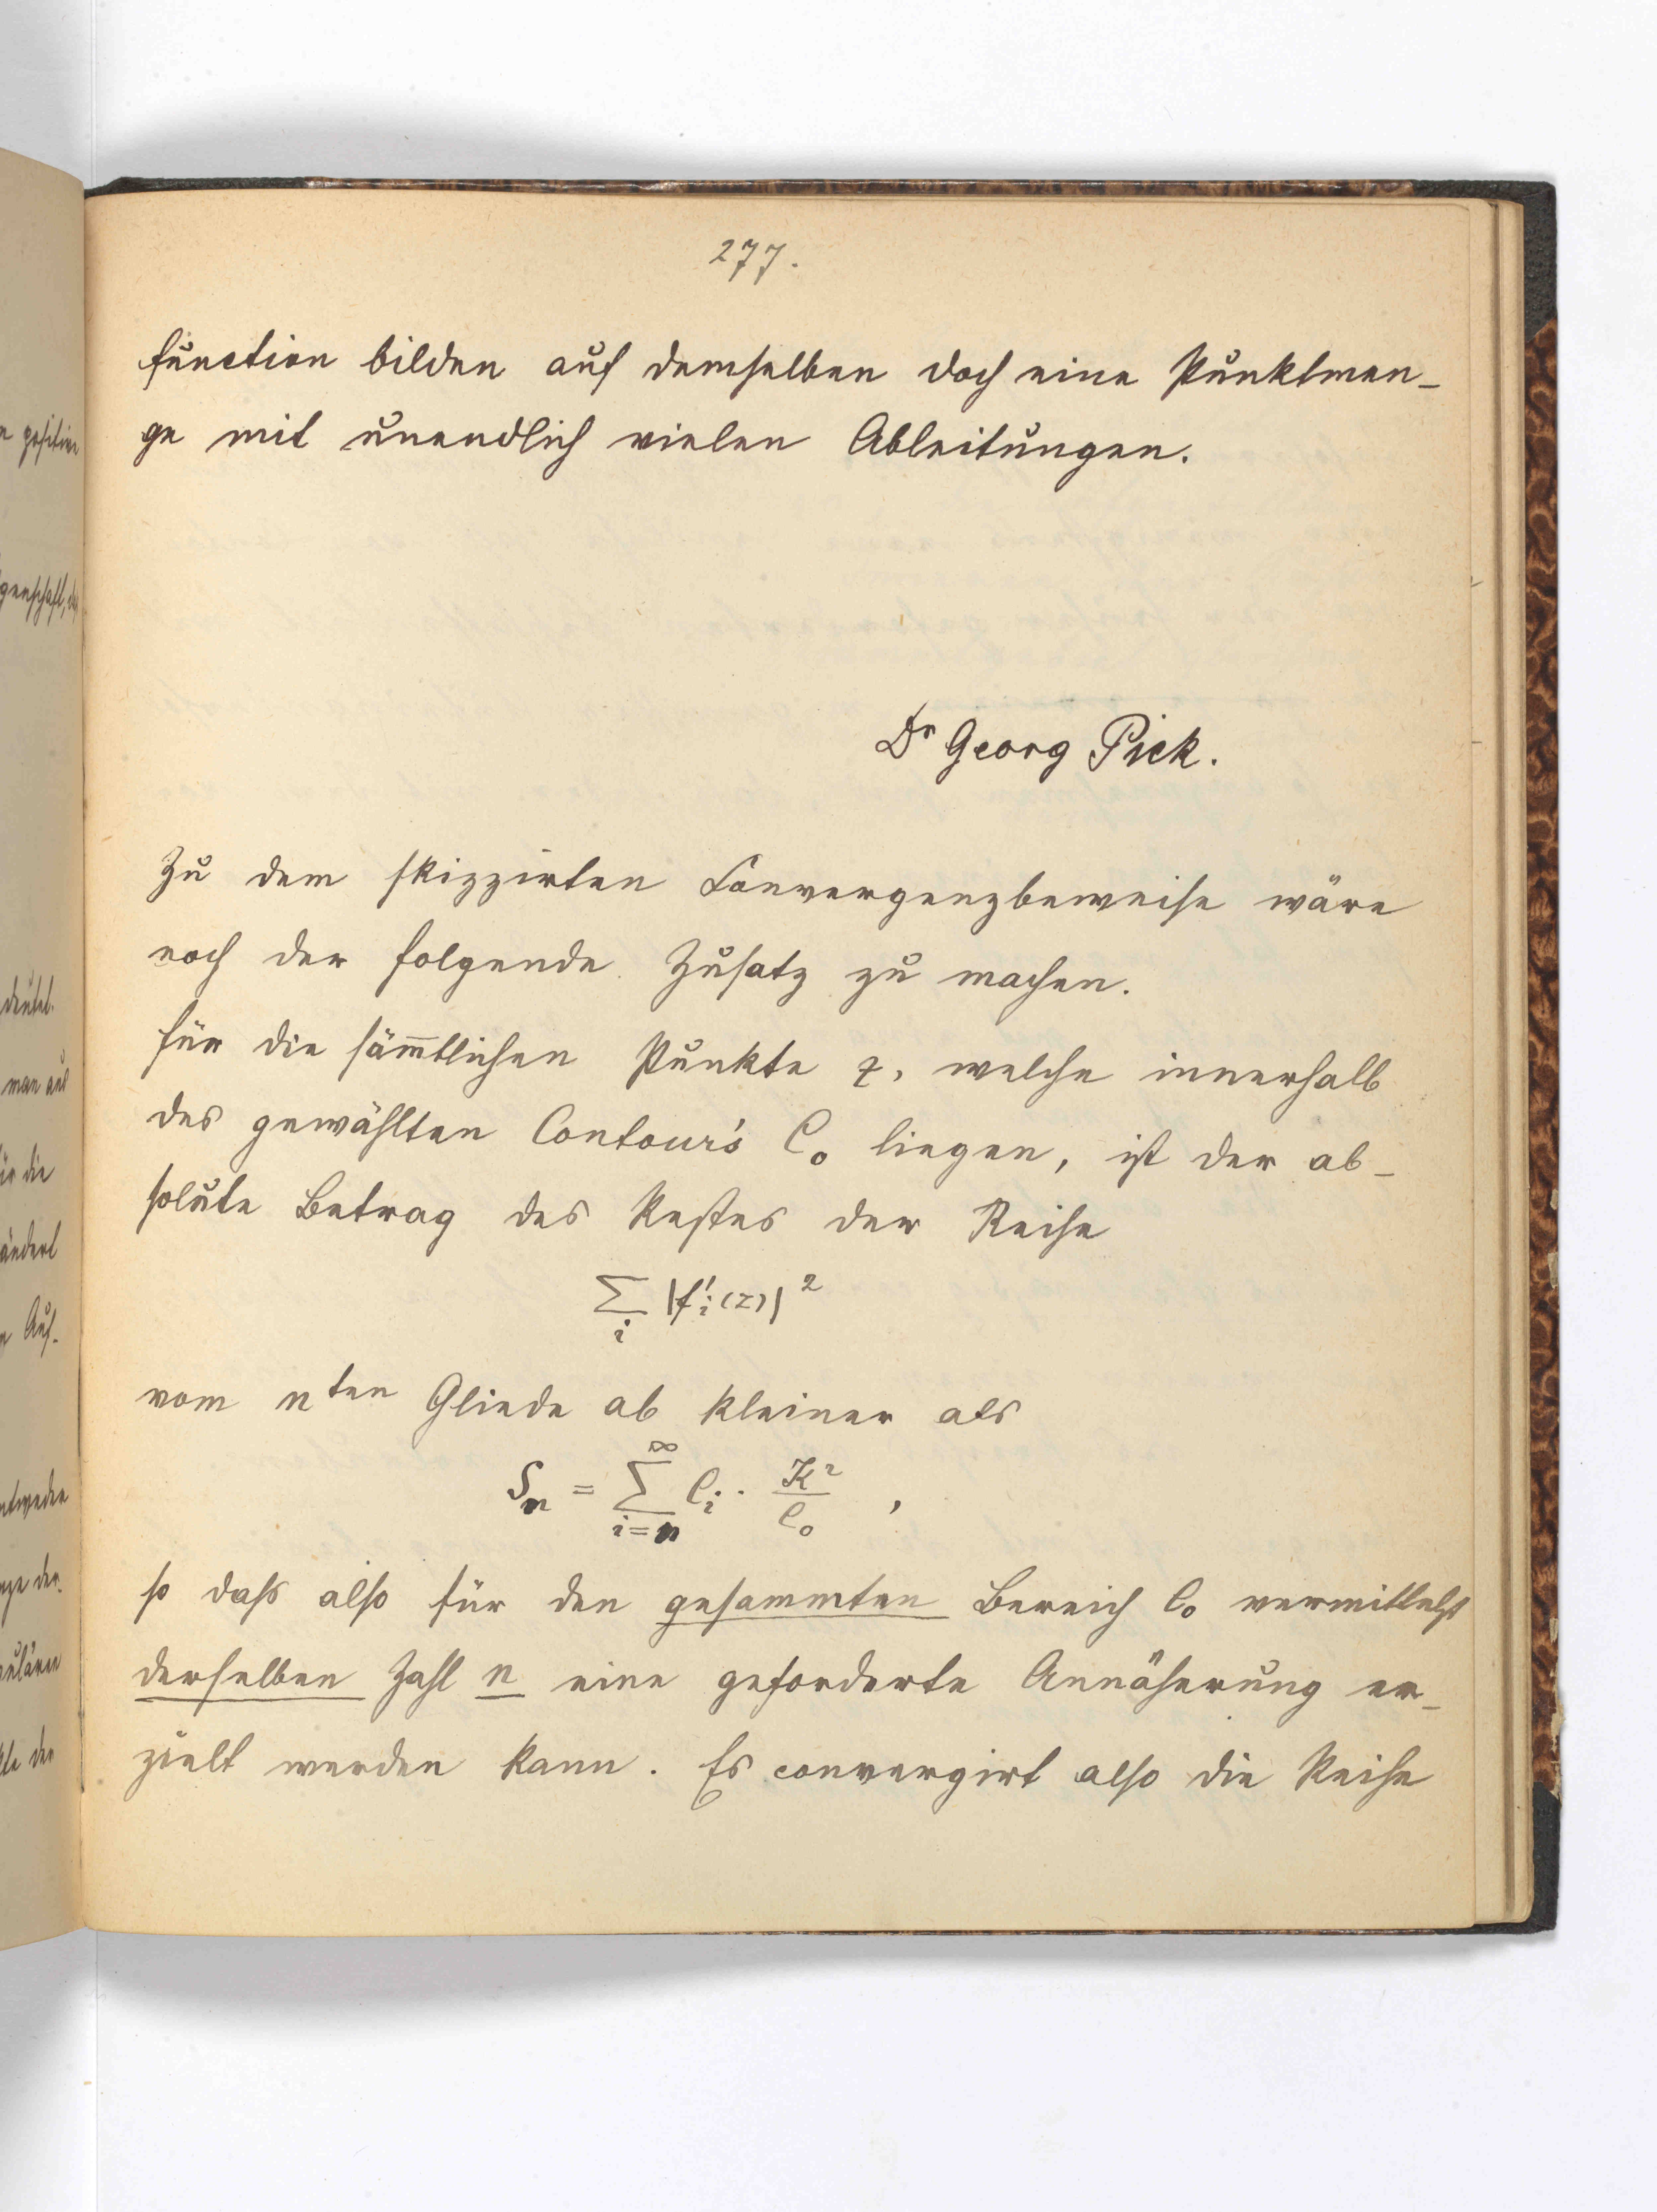 277.
function bilden auf demselben doch eine Punktmen-
ge mit unendlich vielen Ableitungen.
Dr Georg Pick.
Zu dem skizzirten Convergenzbeweise wäre
noch der folgende Zusatz zu machen.
Für die sämmtlichen Punkte z, welche innerhalb
des gewählten Contour's C₀ liegen, ist der ab-
solute Betrag des Restes der Reihe
∑ᵢ |f'ᵢ(z)|²
vom nten Gliede ab kleiner als
Sₙ = ∑_{i=n}^{∞} Cᵢ · K²/C₀ ,
so daß also für den gesammten Bereich C₀ vermittelst
derselben Zahl n eine geforderte Annäherung er-
zielt werden kann. Es convergirt also die Reihe
n positive
genschaft, das
deutet.
man aus
für die
ändert
Auf-
entweder
nge der
gulären
kte der